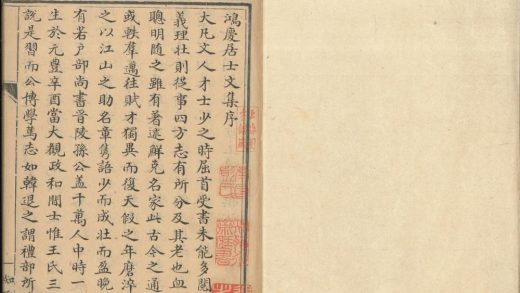 鴻慶居士文集序
大凡文人才士少之時屈首受書未能多閱
義理壯則從事四方志有所分及其老也血
聰明隨之雖有著述鮮克名家此古今之通
或軼羣邁往賦才獨異而復天假之年磨淬
之以江山之助名章雋語少而成壯而盈晚
有若户部尚書晉陵孫公蓋千萬人中時一
生於元豐辛酉當大觀政和間士惟王氏三
說是習而公博學篤志如韓退之謂禮部所